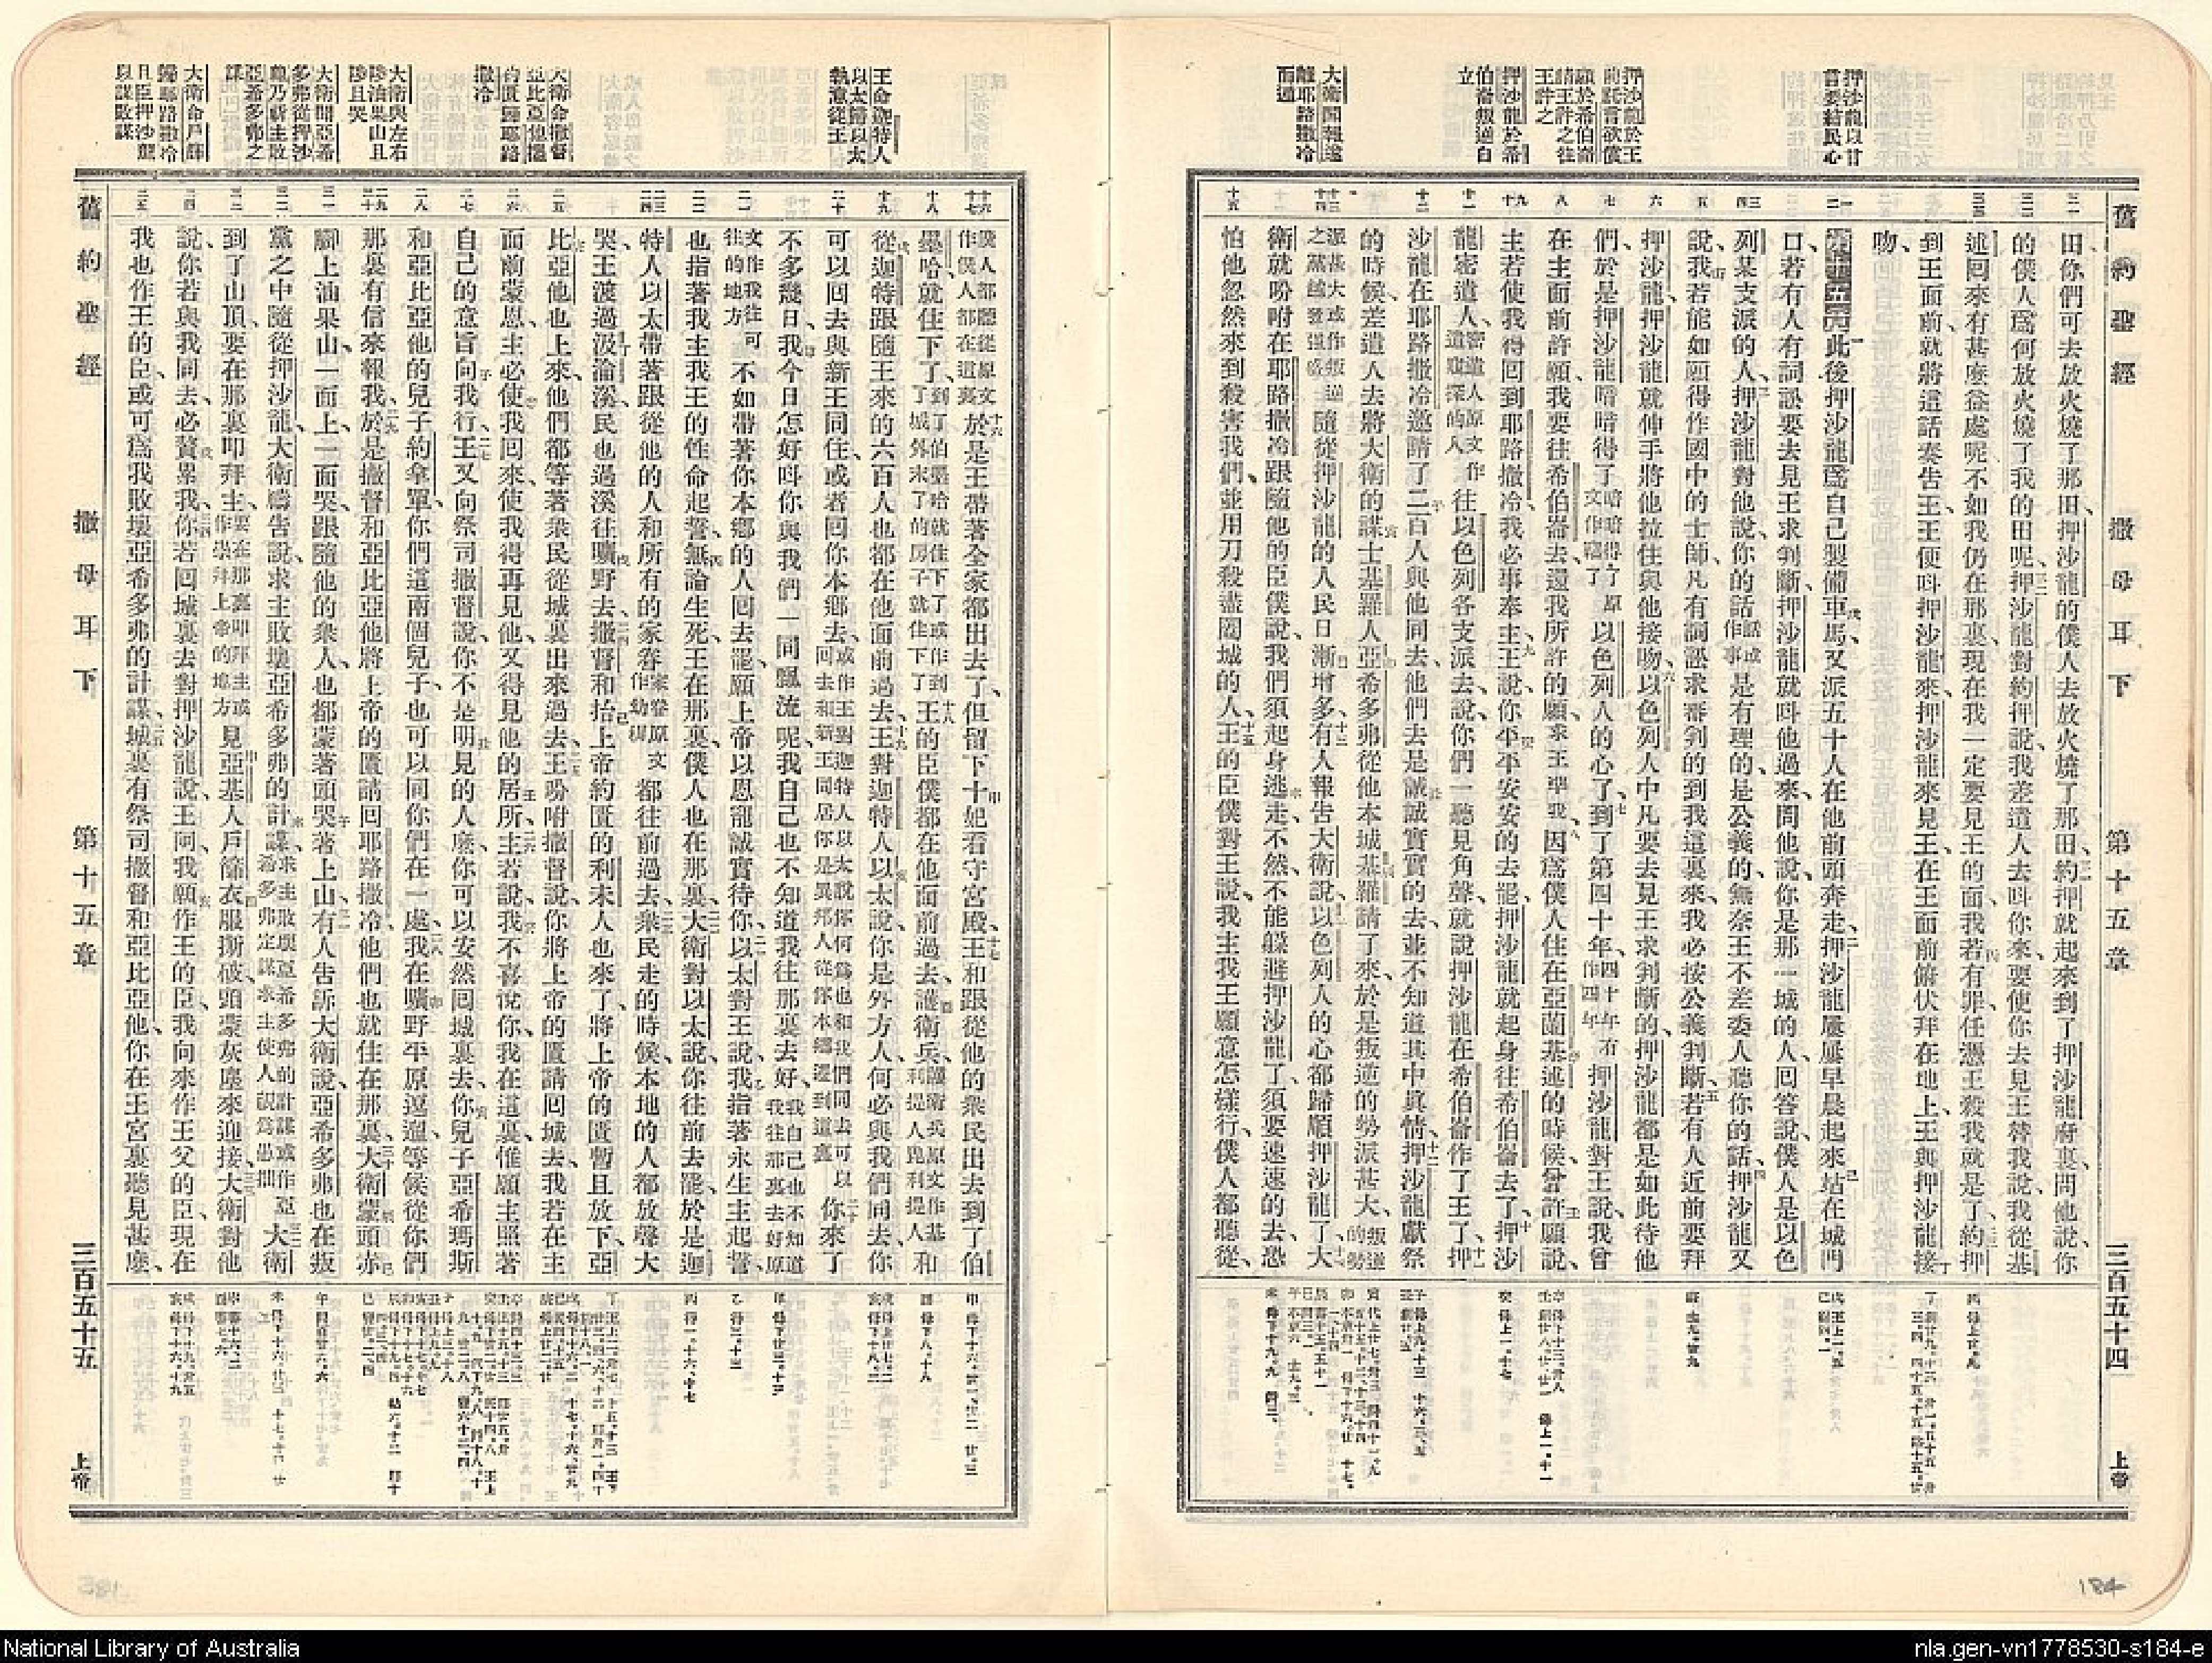 舊約聖經 撒母耳下 第十五章 三百五十四 上帝
押沙龍以甘言要結民心
押沙龍於王前託言欲償願於希伯崙請王許之往王許之
押沙龍於希伯崙叛適自立
大衛聞報遂離耶路撒冷而遁
田、你們可去放火燒了那田、押沙龍的僕人去放火燒了那田、約押就起來到了押沙龍府裏、問他說、你
的僕人爲何放火燒了我的田呢、押沙龍對約押說、我差遣人去呌你來、要使你去見王替我說、我從基
述回來有甚麽益處呢、不如我仍在那裏、現在我一定要見王的面、我若有罪、任憑王殺我就是了、約押
到王面前、就將這話奏告王、王便呌押沙龍來、押沙龍來見王、在王面前俯伏拜在地上、王與押沙龍接
吻、
第十五章 此後押沙龍爲自己製備車馬、又派五十人在他前頭奔走、押沙龍屢屢早晨起來、站在城門
口、若有人有詞訟要去見王求判斷、押沙龍就呌他過來、問他說、你是那一城的人、回答說、僕人是以色
列某支派的人、押沙龍對他說、你的話話或作事是有理的、是公義的、無奈王不差委人聽你的話、押沙龍又
說、我若能如願得作國中的士師、凡有詞訟求審判的到我這裏來、我必按公義判斷、若有人近前要拜
押沙龍、押沙龍就伸手將他拉住、與他接吻、以色列人中凡要去見王求判斷的、押沙龍都是如此待他
們、於是押沙龍暗暗得了暗暗得了原文作竊了以色列人的心、到了第四十年、四十年有作四年押沙龍對王說、我曾
在主面前許願、我要往希伯崙去、還我所許的願、求王準我、因爲僕人住在亞蘭基述的時候、曾許願說、
主若使我得回到耶路撒冷、我必事奉主、王說、你平平安安的去罷、押沙龍就起身往希伯崙去了、押沙
龍密遣人密遣人原文作遣窺探的人往以色列各支派去、說、你們一聽見角聲、就說押沙龍在希伯崙作了王了、押
沙龍在耶路撒冷邀請了二百人與他同去、他們去是誠誠實實的去、並不知道其中眞情、押沙龍獻祭
的時候、差遣人去將大衛的謀士基羅人亞希多弗從他本城基羅請了來、於是叛逆的勢派甚大、叛逆的勢
派甚大或作叛逆之黨越發强盛隨從押沙龍的人民日漸增多、有人報告大衛說、以色列人的心都歸順押沙龍了、大
衛就吩咐在耶路撒冷跟隨他的臣僕說、我們須起身逃走、不然、不能躲避押沙龍了、須要速速的去、恐
怕他忽然來到殺害我們、並用刀殺盡闔城的人、王的臣僕對王說、我主我王願意怎樣行、僕人都聽從、
184
王命迦特人以太歸以太執意從王
大衛命撒督亞比亞他攜約匱歸耶路撒冷
大衛與左右陟油果山且陟且哭
大衛聞亞希多弗從押沙龍乃祈主敗亞希多弗之謀
大衛命戶篩歸耶路撒冷且臣押沙龍以謀敗謀
僕人都聽從原文作僕人都在這裏於是王帶著全家都出去了、但留下十妃看守宮殿、王和跟從他的衆民出去到了伯
墨哈就住下了、到了伯墨哈就住下了或作到了城外末了的房子就住下了王的臣僕都在他面前過去、護衛兵、護衛兵原文作基利提人毘利提人和
從迦特跟隨王來的六百人也都在他面前過去、王對迦特人以太說、你是外方人、何必與我們同去、你
可以回去與新王同住、或者回你本鄉去、或作王對迦特人以太說你何爲也和我們同去可以回去和新王同居你是異邦人從你本鄉遷到這裏你來了
不多幾日、我今日怎好呌你與我們一同飄流呢、我自己也不知道我往那裏去好、我自己也不知道我往那裏去好原
文作我往可往的地方不如帶著你本鄉的人回去罷、願上帝以恩寵誠實待你、以太對王說、我指著永生主起誓、
也指著我主我王的性命起誓、無論生死、王在那裏、僕人也在那裏、大衛對以太說、你往前去罷、於是迦
特人以太帶著跟從他的人和所有的家眷家眷原文作幼穉都往前過去、衆民走的時候、本地的人都放聲大
哭、王渡過汲淪溪、民也過溪往曠野去、撒督和抬上帝約匱的利未人也來了、將上帝的匱暫且放下、亞
比亞他也上來、他們都等著衆民從城裏出來過去、王吩咐撒督說、你將上帝的匱請回城去、我若在主
面前蒙恩、主必使我回來、使我得再見他、又得見他的居所、主若說、我不喜悅你、我在這裏、惟願主照著
自己的意旨向我行、王又向祭司撒督說、你不是明見的人麽、你可以安然回城裏去、你兒子亞希瑪斯
和亞比亞他的兒子約拿單、你們這兩個兒子、也可以同你們在一處、我在曠野平原逗遛、等候從你們
那裏有信來報我、於是撒督和亞比亞他將上帝的匱請回耶路撒冷、他們也就住在那裏、大衛蒙頭赤
腳上油果山、一面上、一面哭、跟隨他的衆人、也都蒙著頭哭著上山、有人告訴大衛說、亞希多弗也在叛
黨之中隨從押沙龍、大衛禱告說、求主敗壞亞希多弗的計謀、求主敗壞亞希多弗的計謀或作亞希多弗定謀求主使人視爲愚拙大衛
到了山頂、要在那裏叩拜主、要在那裏叩拜主或作崇拜上帝的地方見亞基人戶篩衣服撕破、頭蒙灰塵來迎接、大衛對他
說、你若與我同去、必贅累我、你若回城裏去、對押沙龍說、王阿、我願作王的臣、我向來作王父的臣、現在
我也作王的臣、或可爲我敗壞亞希多弗的計謀、城裏有祭司撒督和亞比亞他、你在王宮裏聽見甚麽、
舊約聖經 撒母耳下 第十五章 三百五十五 上帝
National Library of Australia
nla.gen-vn1778530-s184-e